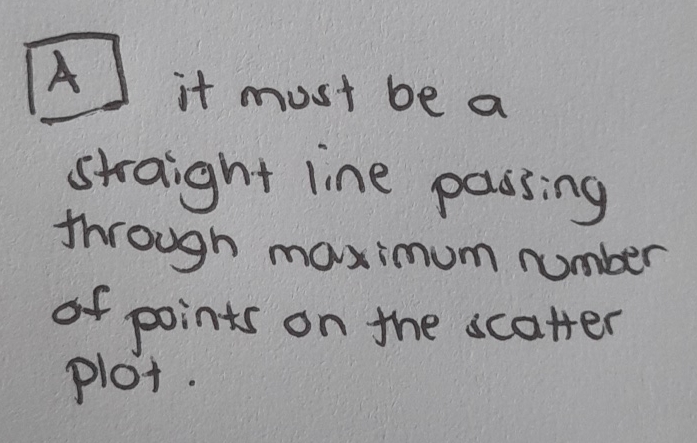 A it must be a
straight line passing
through maximum number
of points on the scatter
plot.